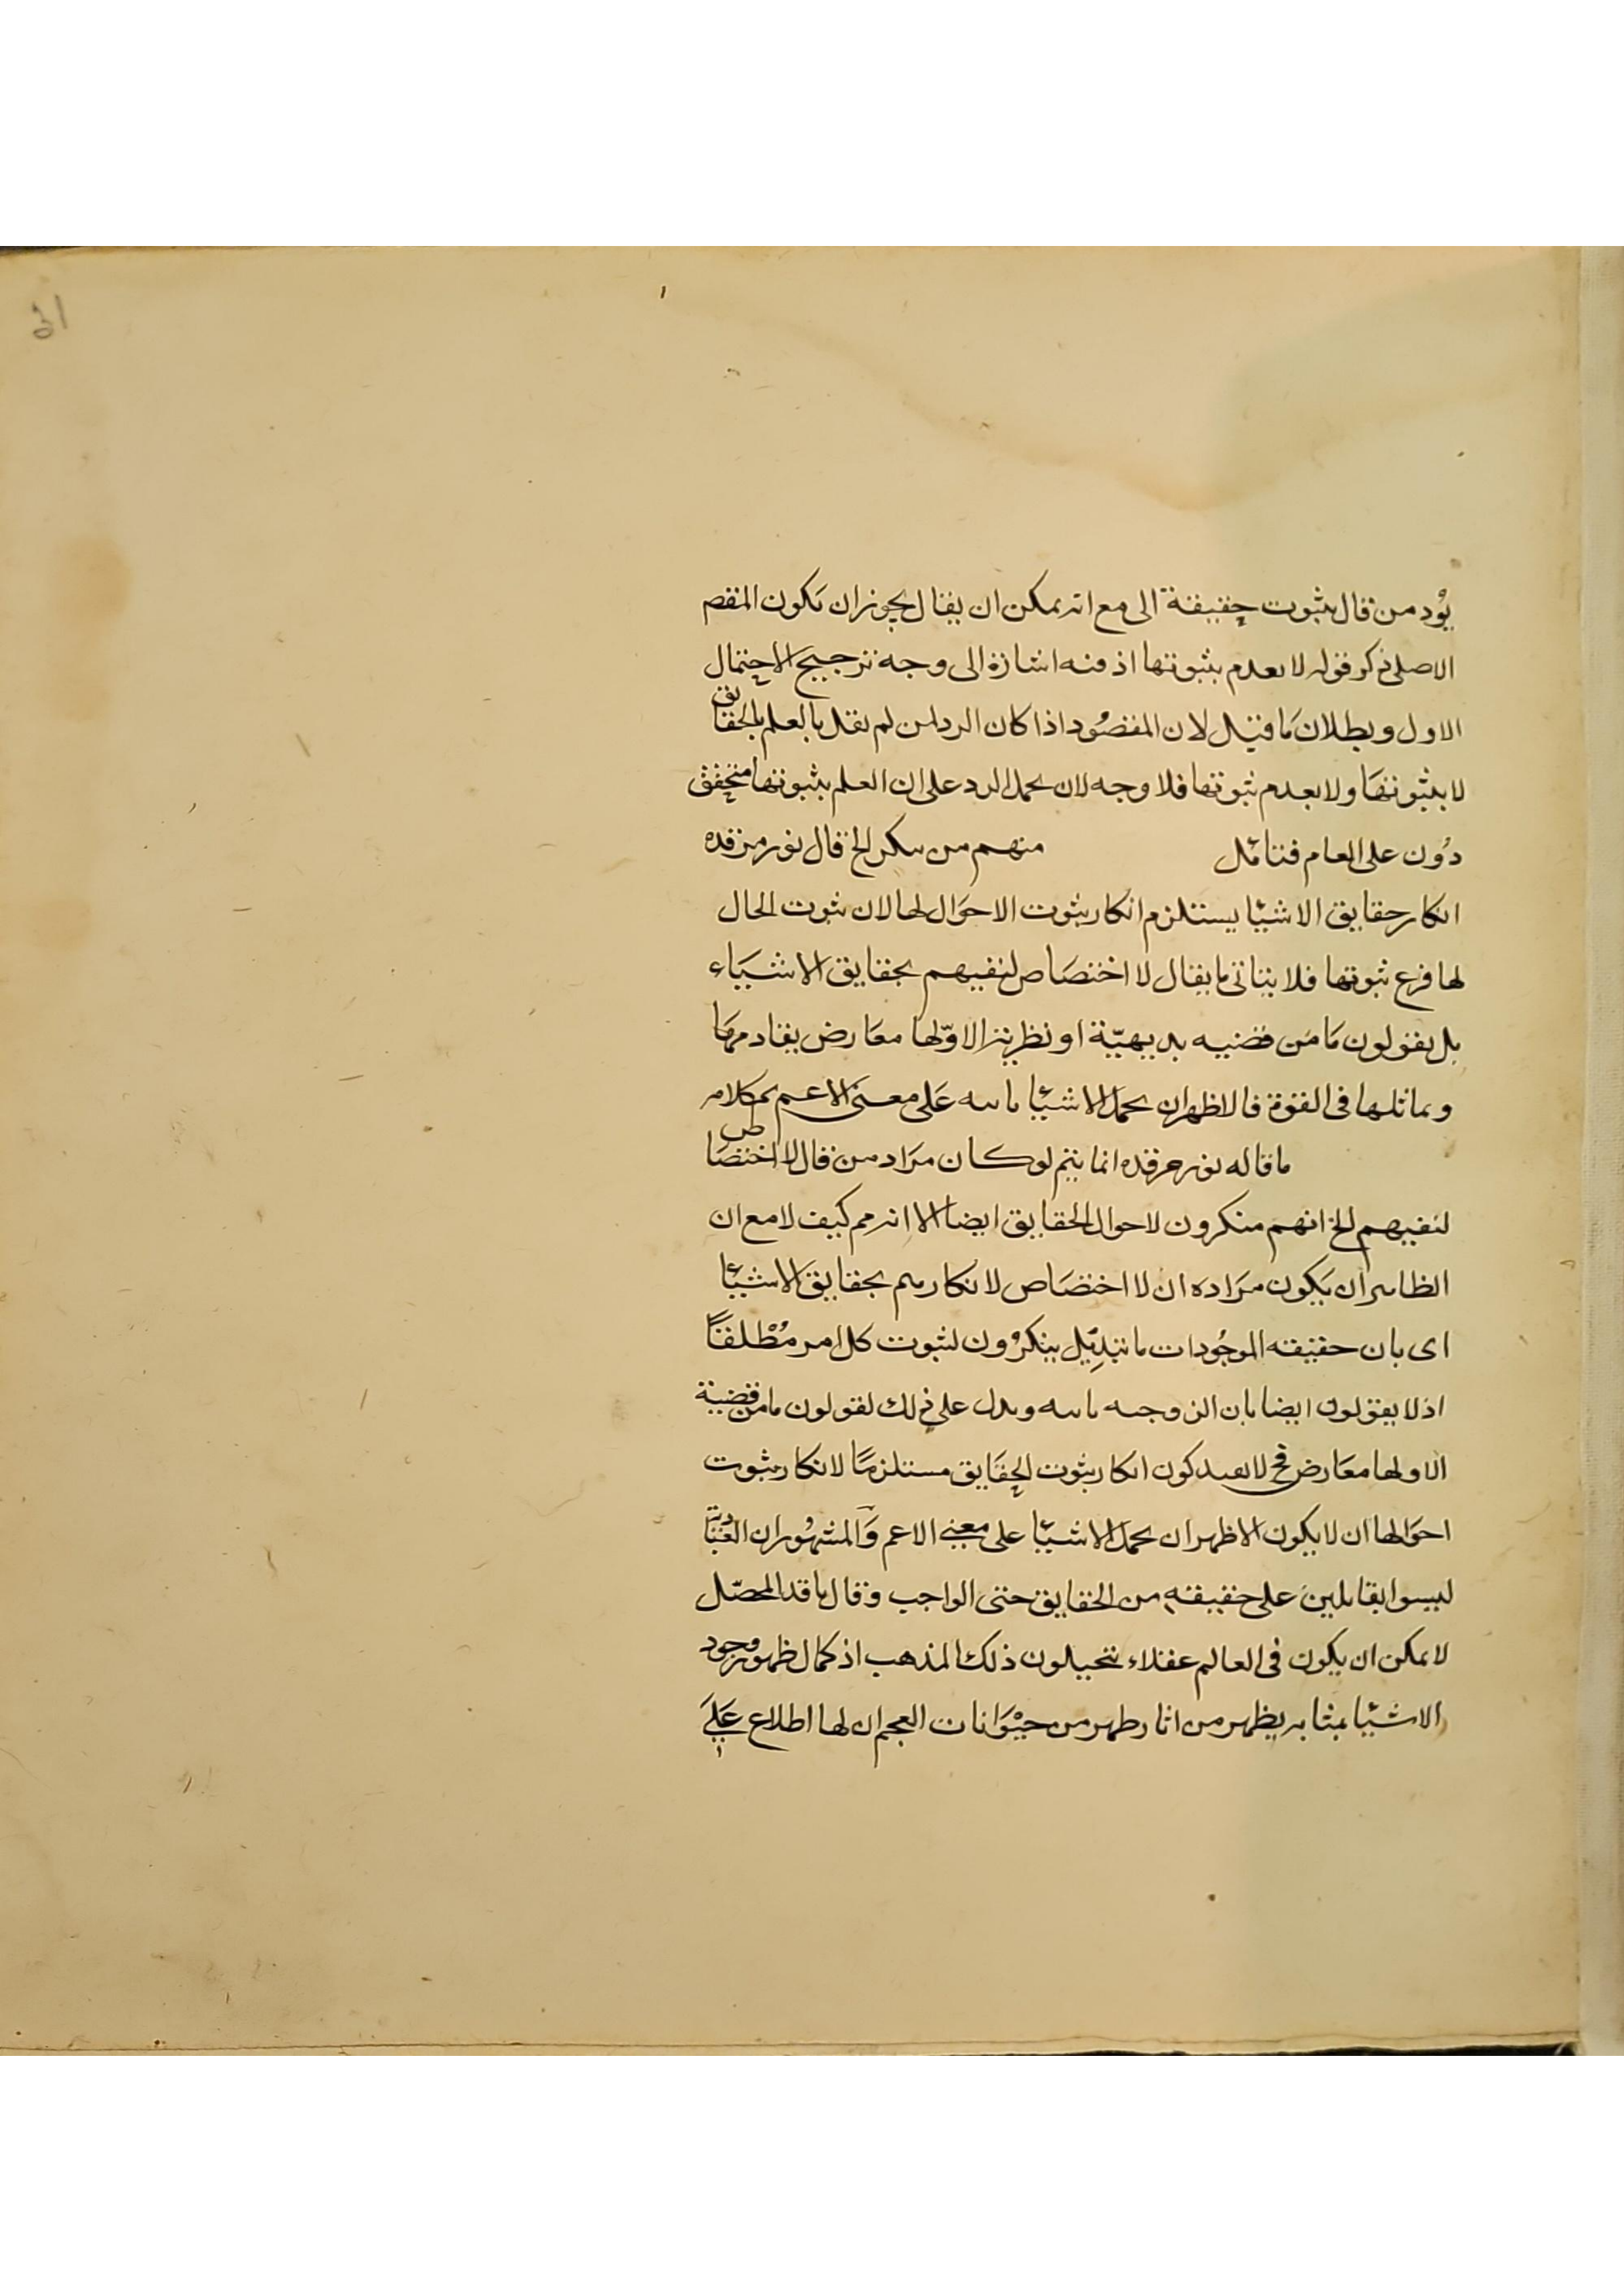 يؤد من قال بثبوت حقيقة الى مع انه يمكن ان يقال يجوز ان يكون المقصـ
الاصلى ذكر قوله لا بعدم بثبوتها اذ فيه اشارة الى وجه ترجيح الاحتمال
الاول وبطلان ما قيل لان المقصود اذا كان الرد لمن لم يقل بالعلم بالحقايق
لا بثبوتها ولا بعدم ثبوتها فلا وجه لان يحمل الرد على ان العلم بثبوتها متحقق
دون على العام فتامل منهم من ينكر الخ قال نور مرقده
انكار حقايق الاشيا يستلزم انكار ثبوت الاحوال لها لان ثبوت الحال
لها فرع ثبوتها فلا ينافى ما يقال لا اختصاص لنفيهم بحقايق الاشياء
بل يقولون ما من قضيه بديهيّة او نظرية الا ولها معارض يقاومها
ويماثلها فى القوة فالاظهر ان يحمل الاشيا على معنى الاعم كلامه
ما قاله نور مرقده انما يتم لو كان مراد من قال لا اختصاص
لنفيهم الخ انهم منكرون لاحوال الحقايق ايضا الا انه مم كيف لا مع ان
الظاهر ان يكون مراده ان لا اختصاص لانكارهم بحقايق الاشيا
اى بان حقيقه الموجودات ينكرون لثبوت كل امر مطلقاً
اذ لا يقولون ايضا بان الزوجيه ويدل على ذلك لقولون ما من قضية
الا ولها معارض فح لا يفيد كون انكار ثبوت الحقايق مستلزما لانكار ثبوت
احوالها ان لا يكون الاظهر ان يحمل الاشيا على معنى الاعم والمشهور ان العنادية
ليسوا بقايلين على حقيقة من الحقايق حتى الواجب وقال ناقد المحصّل
لا يمكن ان يكون فى العالم عقلاء ينتحلون ذلك المذهب اذ كمال ظهور وجود
الاشيا بمثابة يظهر من اثار ظهر من حيوانات العجم ان لها اطلاع على